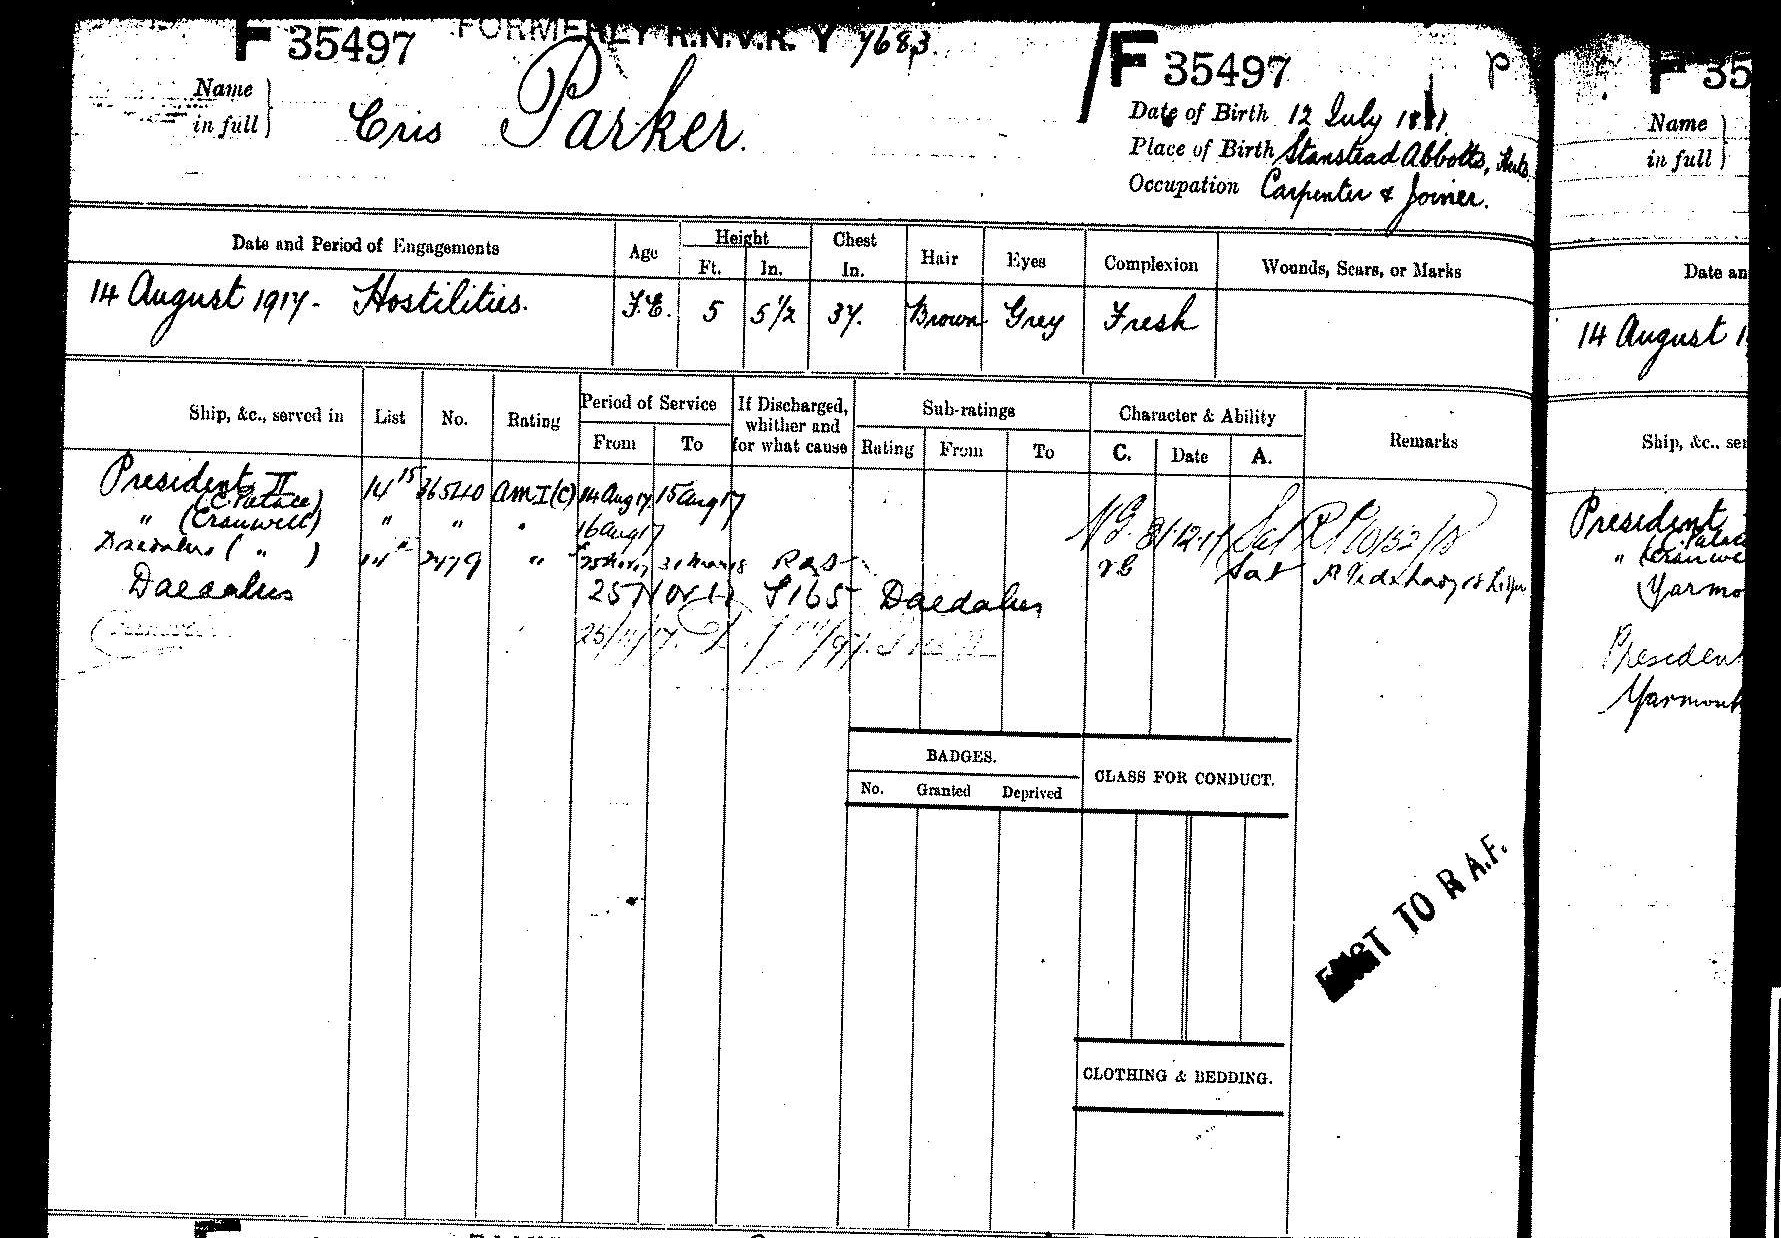 F 35497 FORMERLY R.N.V.R. Y 7683.
Name in full } Cris Parker.
F 35497 P
Date of Birth 12 July
Place of Birth Stanstead Abbotts, Herts.
Occupation Carpenter & Joiner.
Date and Period of Engagements Age Height Ft. In. Chest In. Hair Eyes Complexion Wounds, Scars, or Marks
14 August 1917. Hostilities. F.E. 5 5½ 37. Brown Grey Fresh
Ship, &c., served in List No. Rating Period of Service From To If Discharged, whither and for what cause Sub-ratings Rating From To Character & Ability C. Date A. Remarks
President II 14 15 36540 AM I (C) 14 Aug 17. 15 Aug 17
(C. Palace)
" (Cranwell) " " " 16 Aug 17
Daedalus ( " ) " RAF
Daedalus Daedalus
V.G. 31.12.17 Sat
VG Sat
25/11/17.
BADGES.
No. Granted Deprived
CLASS FOR CONDUCT.
CLOTHING & BEDDING.
TO R.A.F.
F 35
Name in full }
Date an
14 August 1
Ship, &c., ser
President
(C. Palace
" (Cranwe
(Yarmo
Presiden
Yarmouth